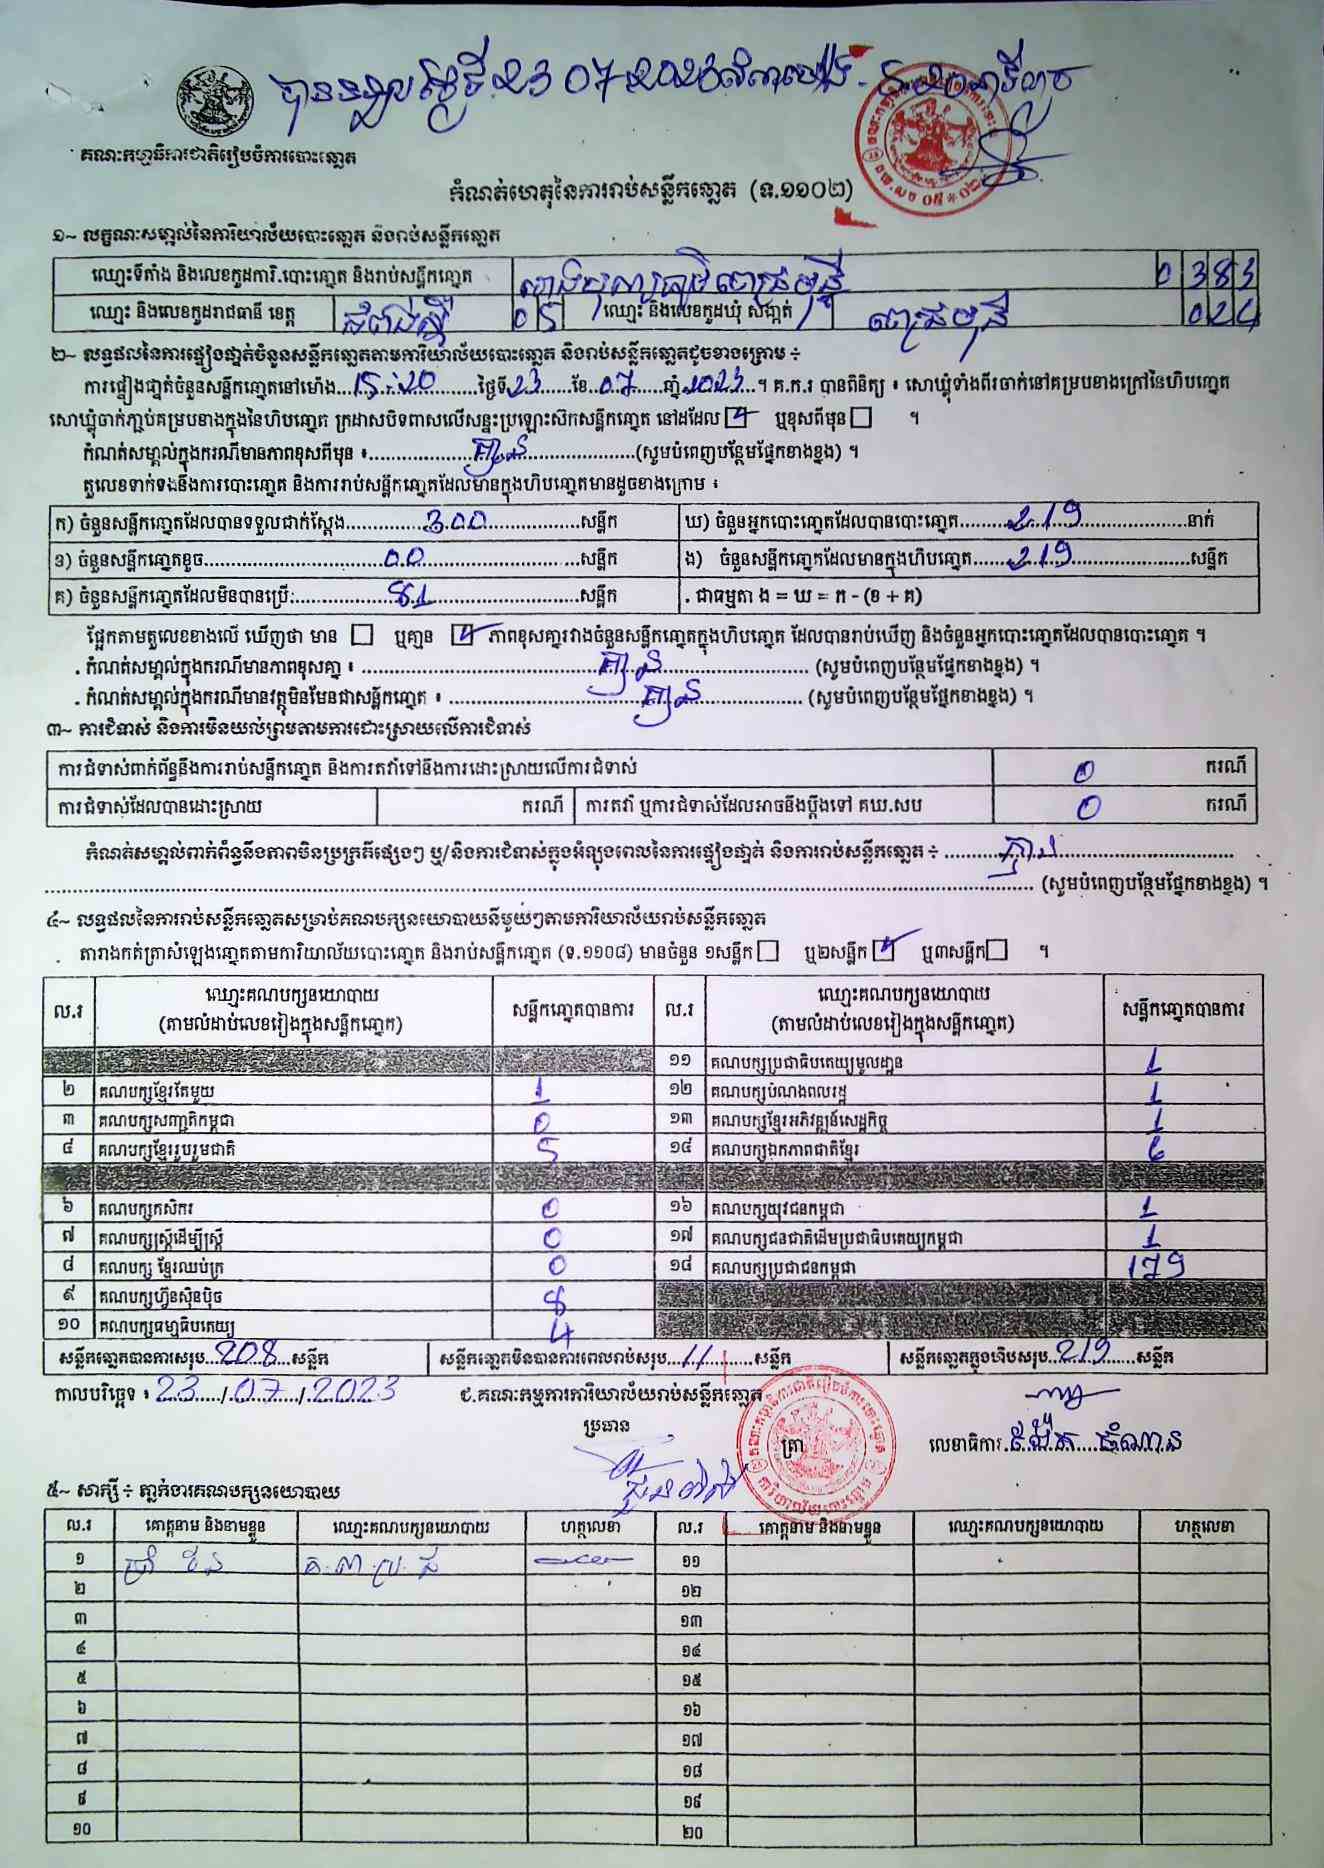 បានទទួលថ្ងៃទី 23 07 2023
គណៈកម្មាធិការជាតិរៀបចំការបោះឆ្នោត
កំណត់ហេតុនៃការរាប់សន្លឹកឆ្នោត (ទ.១១០២)
១~ លក្ខណៈសម្គាល់នៃការិយាល័យបោះឆ្នោត និងរាប់សន្លឹកឆ្នោត
ឈ្មោះទីតាំង និងលេខកូដការិ.បោះឆ្នោត និងរាប់សន្លឹកឆ្នោត 0383
ឈ្មោះ និងលេខកូដរាជធានី ខេត្ត កំពង់ស្ពឺ 05 ឈ្មោះ និងលេខកូដឃុំ សង្កាត់ ពេជ្រមុនី 024
២~ លទ្ធផលនៃការផ្ទៀងផ្ទាត់ចំនួនសន្លឹកឆ្នោតតាមការិយាល័យបោះឆ្នោត និងរាប់សន្លឹកឆ្នោតដូចខាងក្រោម ៖
ការផ្ទៀងផ្ទាត់ចំនួនសន្លឹកឆ្នោតនៅម៉ោង 15:20 ថ្ងៃទី 23 ខែ 07 ឆ្នាំ 2023 ។ គ.ក.រ បានពិនិត្យ ៖ សោឃ្លុំទាំងពីរចាក់នៅគម្របខាងក្រៅនៃហិបឆ្នោត
សោឃ្លុំចាក់ភ្ជាប់គម្របខាងក្នុងនៃហិបឆ្នោត ក្រដាសបិទពាសលើសន្ទះប្រឡោះស៊កសន្លឹកឆ្នោត នៅដដែល ☑ ឬខុសពីមុន ☐ ។
កំណត់សម្គាល់ក្នុងករណីមានភាពខុសពីមុន ៖ គ្មាន (សូមបំពេញបន្ថែមផ្នែកខាងខ្នង) ។
តួលេខទាក់ទងនឹងការបោះឆ្នោត និងការរាប់សន្លឹកឆ្នោតដែលមានក្នុងហិបឆ្នោតមានដូចខាងក្រោម ៖
ក) ចំនួនសន្លឹកឆ្នោតដែលបានទទួលជាក់ស្តែង 300 សន្លឹក ឃ) ចំនួនអ្នកបោះឆ្នោតដែលបានបោះឆ្នោត 219 នាក់
ខ) ចំនួនសន្លឹកឆ្នោតខូច 00 សន្លឹក ង) ចំនួនសន្លឹកឆ្នោតដែលមានក្នុងហិបឆ្នោត 219 សន្លឹក
គ) ចំនួនសន្លឹកឆ្នោតដែលមិនបានប្រើ 81 សន្លឹក . ជាធម្មតា ង = ឃ = ក - (ខ + គ)
ផ្អែកតាមតួលេខខាងលើ ឃើញថា មាន ☐ ឬគ្មាន ☑ ភាពខុសគ្នារវាងចំនួនសន្លឹកឆ្នោតក្នុងហិបឆ្នោត ដែលបានរាប់ឃើញ និងចំនួនអ្នកបោះឆ្នោតដែលបានបោះឆ្នោត ។
. កំណត់សម្គាល់ក្នុងករណីមានភាពខុសគ្នា ៖ គ្មាន (សូមបំពេញបន្ថែមផ្នែកខាងខ្នង) ។
. កំណត់សម្គាល់ក្នុងករណីមានវត្ថុមិនមែនជាសន្លឹកឆ្នោត ៖ គ្មាន (សូមបំពេញបន្ថែមផ្នែកខាងខ្នង) ។
៣~ ការជំទាស់ និងការមិនយល់ព្រមតាមការដោះស្រាយលើការជំទាស់
ការជំទាស់ពាក់ព័ន្ធនឹងការរាប់សន្លឹកឆ្នោត និងការតវ៉ាទៅនឹងការដោះស្រាយលើការជំទាស់ 0 ករណី
ការជំទាស់ដែលបានដោះស្រាយ ករណី ការតវ៉ា ឬការជំទាស់ដែលអាចនឹងប្តឹងទៅ គឃ.សប 0 ករណី
កំណត់សម្គាល់ពាក់ព័ន្ធនឹងភាពមិនប្រក្រតីផ្សេងៗ ឬ/និងការជំទាស់ក្នុងអំឡុងពេលនៃការផ្ទៀងផ្ទាត់ និងការរាប់សន្លឹកឆ្នោត ៖ គ្មាន
(សូមបំពេញបន្ថែមផ្នែកខាងខ្នង) ។
៤~ លទ្ធផលនៃការរាប់សន្លឹកឆ្នោតសម្រាប់គណបក្សនយោបាយនីមួយៗតាមការិយាល័យរាប់សន្លឹកឆ្នោត
តារាងកត់ត្រាសំឡេងឆ្នោតតាមការិយាល័យបោះឆ្នោត និងរាប់សន្លឹកឆ្នោត (ទ.១១០៨) មានចំនួន ១សន្លឹក ☐ ឬ២សន្លឹក ☑ ឬ៣សន្លឹក ☐ ។
ល.រ ឈ្មោះគណបក្សនយោបាយ (តាមលំដាប់លេខរៀងក្នុងសន្លឹកឆ្នោត) សន្លឹកឆ្នោតបានការ ល.រ ឈ្មោះគណបក្សនយោបាយ (តាមលំដាប់លេខរៀងក្នុងសន្លឹកឆ្នោត) សន្លឹកឆ្នោតបានការ
១១ គណបក្សប្រជាធិបតេយ្យមូលដ្ឋាន 1
២ គណបក្សខ្មែរតែមួយ 1 ១២ គណបក្សបំណងពលរដ្ឋ 1
៣ គណបក្សសញ្ជាតិកម្ពុជា 0 ១៣ គណបក្សខ្មែរអភិវឌ្ឍន៍សេដ្ឋកិច្ច 1
៤ គណបក្សខ្មែររួបរួមជាតិ 5 ១៤ គណបក្សឯកភាពជាតិខ្មែរ 6
៦ គណបក្សកសិករ 0 ១៦ គណបក្សយុវជនកម្ពុជា 1
៧ គណបក្សស្ត្រីដើម្បីស្ត្រី 0 ១៧ គណបក្សជនជាតិដើមប្រជាធិបតេយ្យកម្ពុជា 1
៨ គណបក្ស ខ្មែរឈប់ក្រ 0 ១៨ គណបក្សប្រជាជនកម្ពុជា 179
៩ គណបក្សហ្វ៊ុនស៊ិនប៉ិច 8
១០ គណបក្សធម្មាធិបតេយ្យ 4
សន្លឹកឆ្នោតបានការសរុប 208 សន្លឹក សន្លឹកឆ្នោតមិនបានការពេលរាប់សរុប 11 សន្លឹក សន្លឹកឆ្នោតក្នុងហិបសរុប 219 សន្លឹក
កាលបរិច្ឆេទ ៖ 23/07/2023 ជ.គណៈកម្មការការិយាល័យរាប់សន្លឹកឆ្នោត
ប្រធាន
ត្រា លេខាធិការ
៥~ សាក្សី ៖ ភ្នាក់ងារគណបក្សនយោបាយ
ល.រ គោត្តនាម និងនាមខ្លួន ឈ្មោះគណបក្សនយោបាយ ហត្ថលេខា ល.រ គោត្តនាម និងនាមខ្លួន ឈ្មោះគណបក្សនយោបាយ ហត្ថលេខា
១ ១១
២ ១២
៣ ១៣
៤ ១៤
៥ ១៥
៦ ១៦
៧ ១៧
៨ ១៨
៩ ១៩
១០ ២០